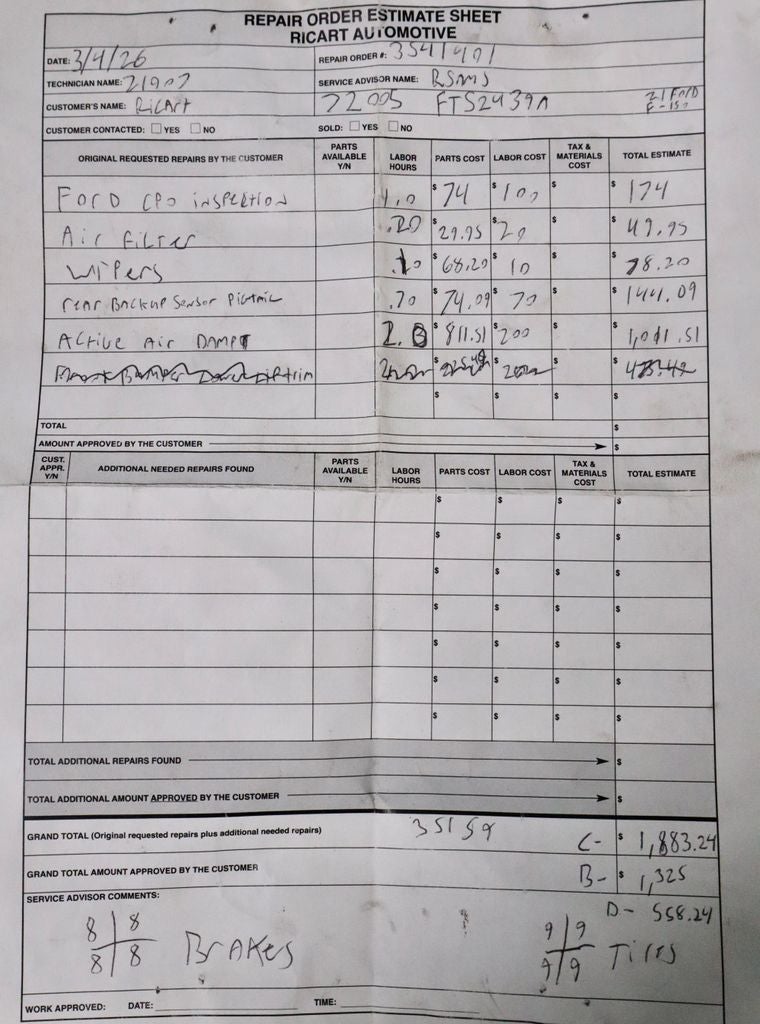 REPAIR ORDER ESTIMATE SHEET
RICART AUTOMOTIVE
DATE: 3/4/26 REPAIR ORDER #: 3541491
TECHNICIAN NAME: 21907 SERVICE ADVISOR NAME: RSAMS
CUSTOMER'S NAME: Ricart 72005 FTS2439A 21 Ford F-150
CUSTOMER CONTACTED: YES NO SOLD: YES NO
ORIGINAL REQUESTED REPAIRS BY THE CUSTOMER PARTS AVAILABLE Y/N LABOR HOURS PARTS COST LABOR COST TAX & MATERIALS COST TOTAL ESTIMATE
Ford CPO inspection 1.0 $74 $100 $ $174
Air Filter .20 $29.95 $20 $ $49.95
Wipers .10 $68.20 $10 $ $78.20
rear Backup Sensor Pigtail .70 $74.09 $70 $ $144.09
Active Air Damp 2.0 $811.51 $200 $ $1,011.51
$ $ $ $
$ $ $ $
TOTAL $
AMOUNT APPROVED BY THE CUSTOMER $
CUST. APPR. Y/N ADDITIONAL NEEDED REPAIRS FOUND PARTS AVAILABLE Y/N LABOR HOURS PARTS COST LABOR COST TAX & MATERIALS COST TOTAL ESTIMATE
$ $ $ $
$ $ $ $
$ $ $ $
$ $ $ $
$ $ $ $
$ $ $ $
$ $ $ $
TOTAL ADDITIONAL REPAIRS FOUND $
TOTAL ADDITIONAL AMOUNT APPROVED BY THE CUSTOMER $
GRAND TOTAL (Original requested repairs plus additional needed repairs) 35159 C- $ 1,883.24
GRAND TOTAL AMOUNT APPROVED BY THE CUSTOMER B- $ 1,325
SERVICE ADVISOR COMMENTS: D- 558.24
8 8 9 9
8 8 Brakes 9 9 Tires
WORK APPROVED: DATE: TIME: